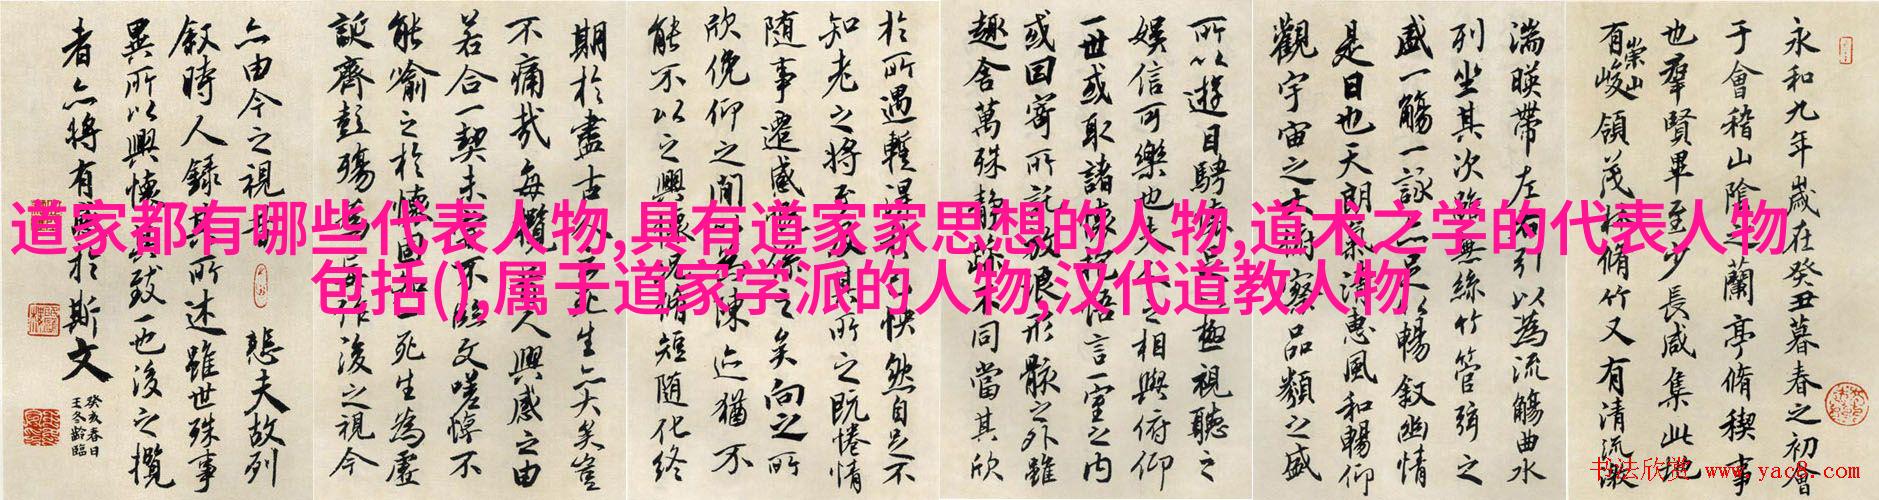 道家都有哪些代表人物,具有道家家思想的人物,道术之学的代表人物
包括(),属于道家学派的人物,汉代道教人物
永和九年歲在癸丑暮春之初會
于會稽山陰之蘭亭脩稧事
也羣賢畢至少長咸集此地
有崇山峻領茂林脩竹又有清流激
湍暎帶左右引以為流觴曲水
列坐其次雖無絲竹管弦之
盛一觴一詠亦足以暢敘幽情
是日也天朗氣清惠風和暢仰
觀宇宙之大俯察品類之盛
所以遊目騁懷足以極視聽之
娛信可樂也夫人之相與俯仰
一世或取諸懷抱悟言一室之內
或因寄所託放浪形骸之外雖
趣舍萬殊靜躁不同當其欣
於所遇暫得於己快然自足不
知老之將至及其所之既惓情
随事遷感慨係之矣向之所
欣俛仰之閒以為陳迹猶不
能不以之興懷況脩短随化終
期於盡古人云死生亦大矣豈
不痛哉每攬昔人興感之由
若合一契未嘗不臨文嗟悼不
能喻之於懷固知一死生為虛
誕齊彭殤為妄作後之視今
亦由今之視昔悲夫故列
敘時人錄其所述雖世殊事
異所以興懷其致一也後之攬
者亦將有感於斯文
癸亥春日
王冬齡臨
书法欣赏 www.yac8.com